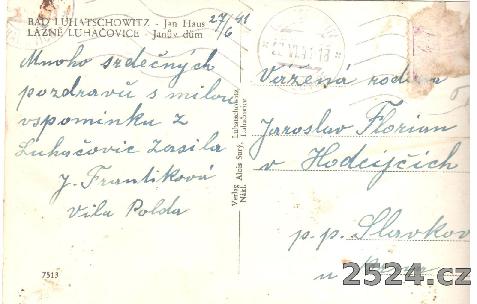 BAD LUHATSCHOWITZ - Jan Haus
LÁZNĚ LUHAČOVICE - Janův dům
27/6 41
Mnoho srdečných
pozdravů s milou
vspomínku z
Luhačovic zasílá
J. Frantíková
Vila Polda
7513
Verlag Alois Surý, Luhatschowitz.
Nákl. Alois Surý, Luhačovice
22 VI. 41 18
Vážená rodina
Jaroslav Florian
v Hodějicích
p.p. Slavkov
u Brna
2524.cz